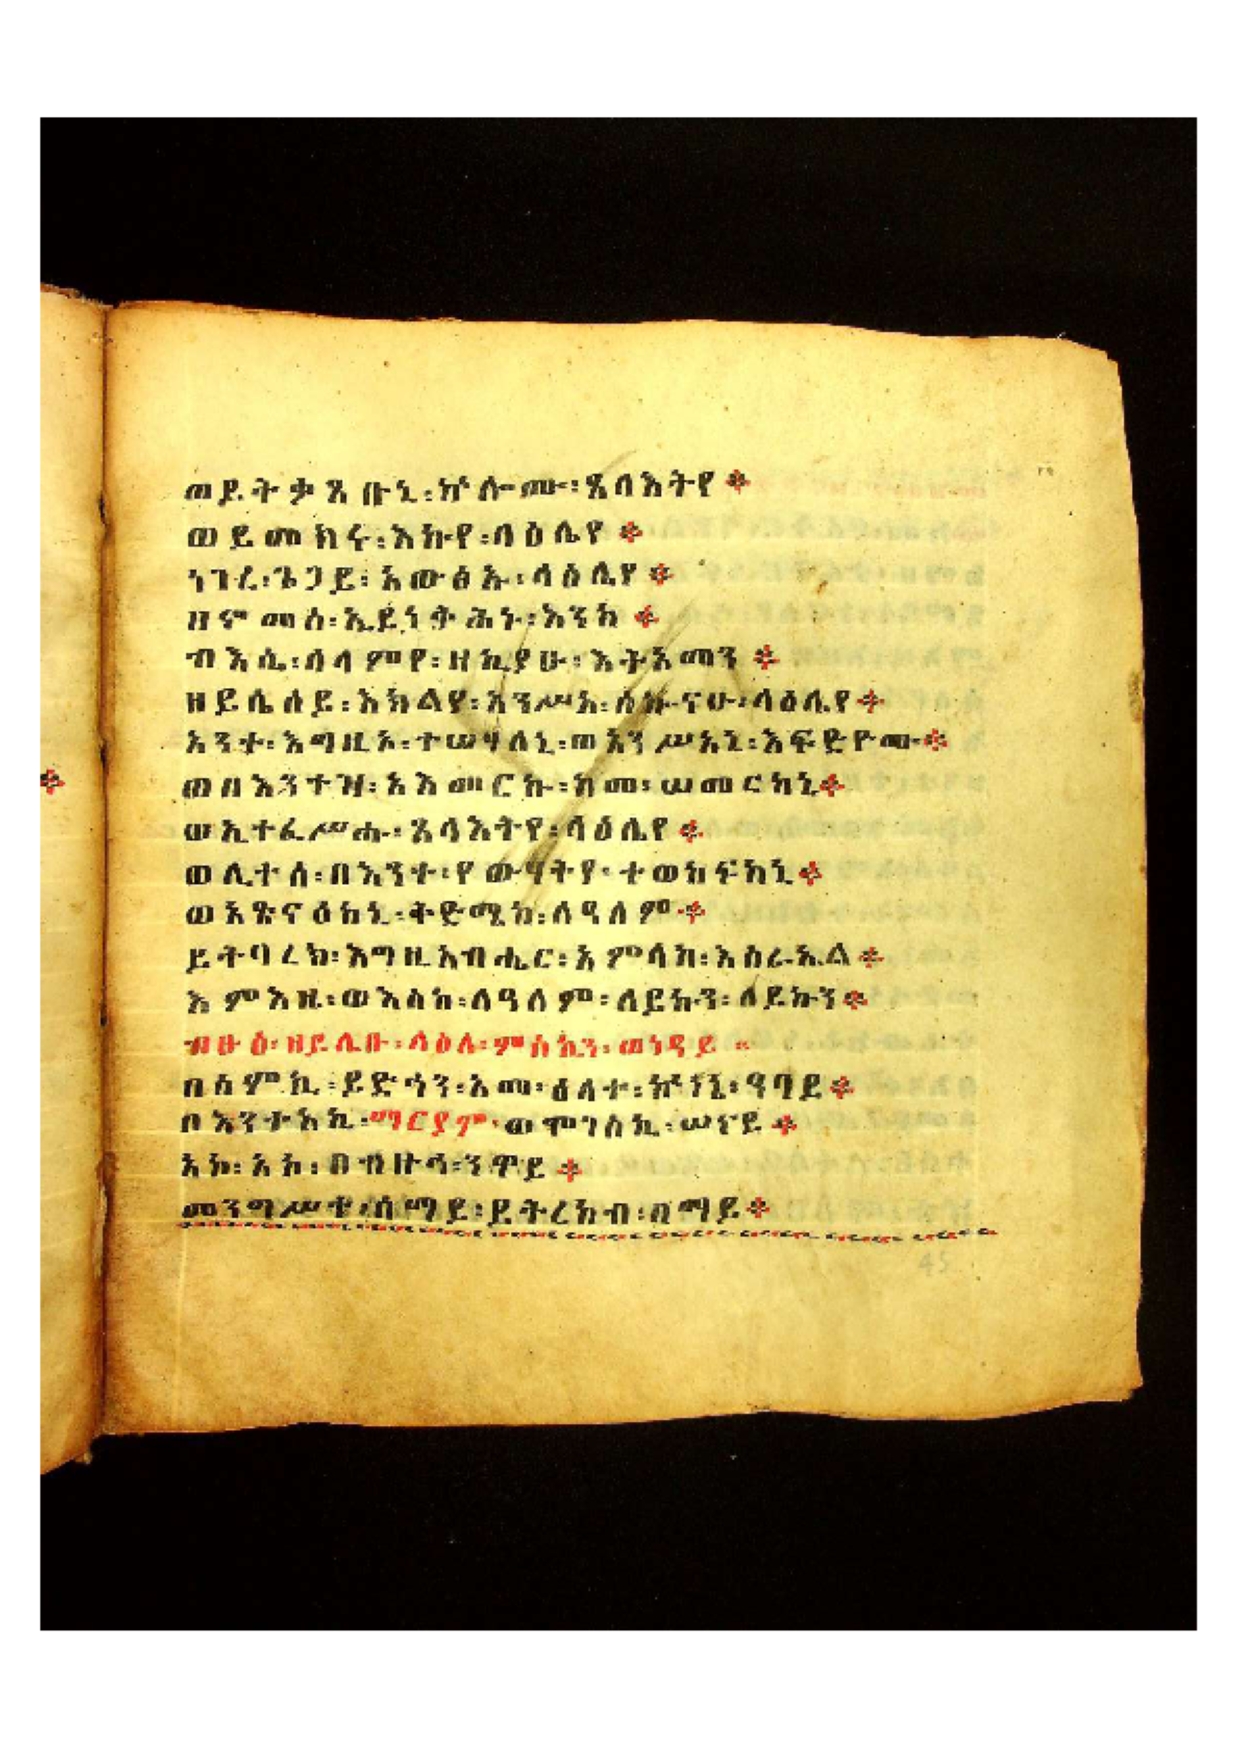 ወይትቃጸቡኒ፡ኵሎሙ፡ጸላእትየ፨
ወይመክሩ፡እኩየ፡ላዕሌየ፨
ነገረ፡ጌጋይ፡አውፅኡ፡ላዕሌየ፨
ዘኖመሰ፡ኢይነቅሕኑ፡እንከ፨
ብእሴ፡ሰላምየ፡ዘኪያሁ፡እትአመን፨
ዘይሴሰይ፡እክልየ፡አንሥአ፡ሰኰናሁ፡ላዕሌየ፨
አንተ፡እግዚኦ፡ተሣሃለኒ፡ወአንሥአኒ፡እፍድዮሙ፨
ወበእንተዝ፡አእመርኩ፡ከመ፡ሠመርከኒ፨
ወኢተፈሥሑ፡ጸላእትየ፡ላዕሌየ፨
ወሊተሰ፡በእንተ፡የውሃትየ፡ተወከፍከኒ፨
ወአጽናዕከኒ፡ቅድሜከ፡ለዓለም፨
ይትባረክ፡እግዚአብሔር፡አምላከ፡እስራኤል፨
እምእዜ፡ወእስከ፡ለዓለም፡ለይኩን፡ለይኩን፨
ብፁዕ፡ዘይሌቡ፡ላዕለ፡ምስኪን፡ወነዳይ።
በስምኪ፡ይድኅን፡አመ፡ዕለተ፡ኵነኔ፡ዓባይ፨
በእንተአኪ፡ማርያም፡ወሞገስኪ፡ሠናይ፨
አኮ፡አኮ፡በብዙኅ፡ንዋይ፨
መንግሥተ፡ሰማይ፡ይትረከብ፡በማይ፨
45